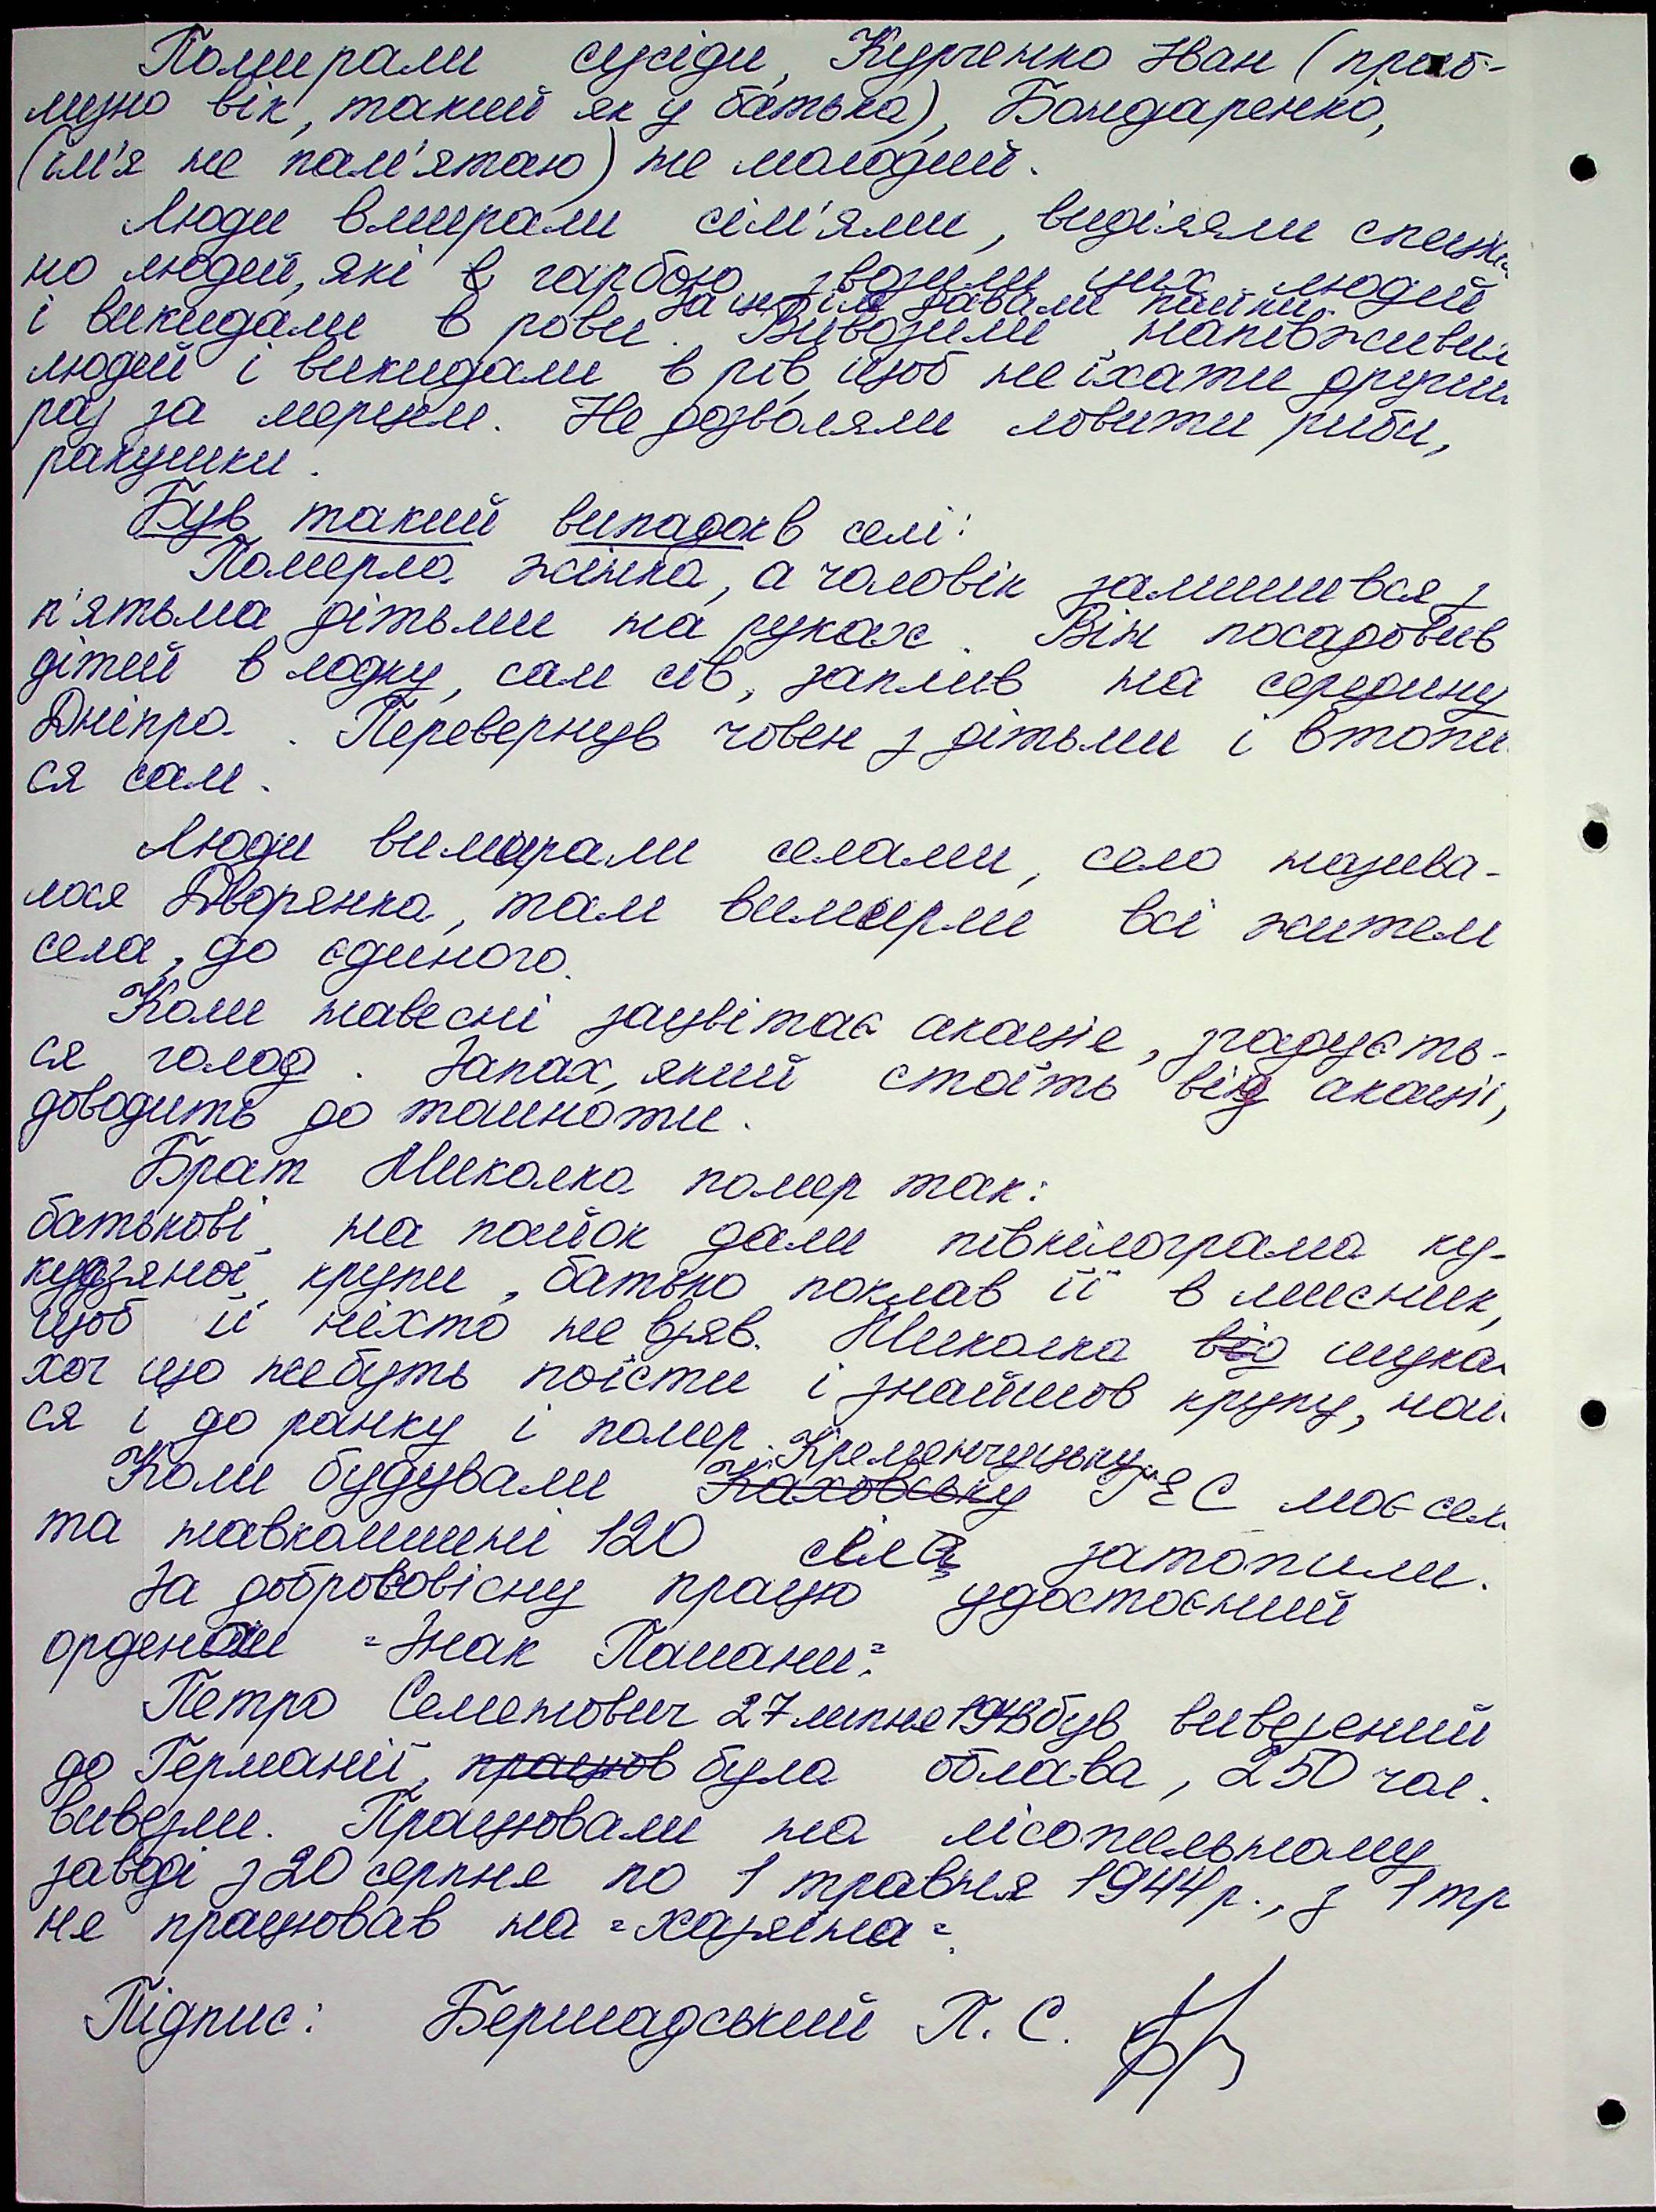 Помирали сусіди, Курченко Іван (приб-
лизно вік, такий як у батька), Бондаренко,
(ім'я не пам'ятаю) не молодий.
Люди вмирали сім'ями, виділяли спеціаль
но людей, які гарбою звозили цих людей
за це їм давали пайки.
і викидали в рови. Вивозили напівживих
людей і викидали в рів, щоб не їхати другий
раз за мерцем. Не дозволяли ловити риби,
ракушки.
Був такий випадок в селі:
Померла жінка, а чоловік залишився з
п'ятьма дітьми на руках. Він посадовив
дітей в лодку, сам сів, заплив на середину
Дніпра. Перевернув човен з дітьми і втопи
ся сам.
Люди вимирали селами, село назива-
лося Дворянка, там вимерли всі жителі
села, до єдиного.
Коли навесні зацвітає акація, згадуєть-
ся голод. Запах, який стоїть від акації,
доводить до тошноти.
Брат Миколка помер так:
батькові на пайок дали півкілограма ку-
кудзяної крупи, батько поклав її в мисник,
щоб її ніхто не взяв. Миколка від шукав
хоч що небуть поїсти і знайшов крупу, наї
ся і до ранку і помер.
Кременчуцьку
Коли будували Каховську ГЕС моє село
та навколишні 120 сіл затопили.
За добросовісну працю удостоєний
орденом "Знак Пошани".
Петро Семенович 27 липня 1943 був вивезений
до Германії, працюв була облава, 250 чол.
вивезли. Працювали на лісопильному
заводі з 20 серпня по 1 травня 1944 р., з 1 тр
ня працював на "хазяїна".
Підпис: Бершадський П. С.